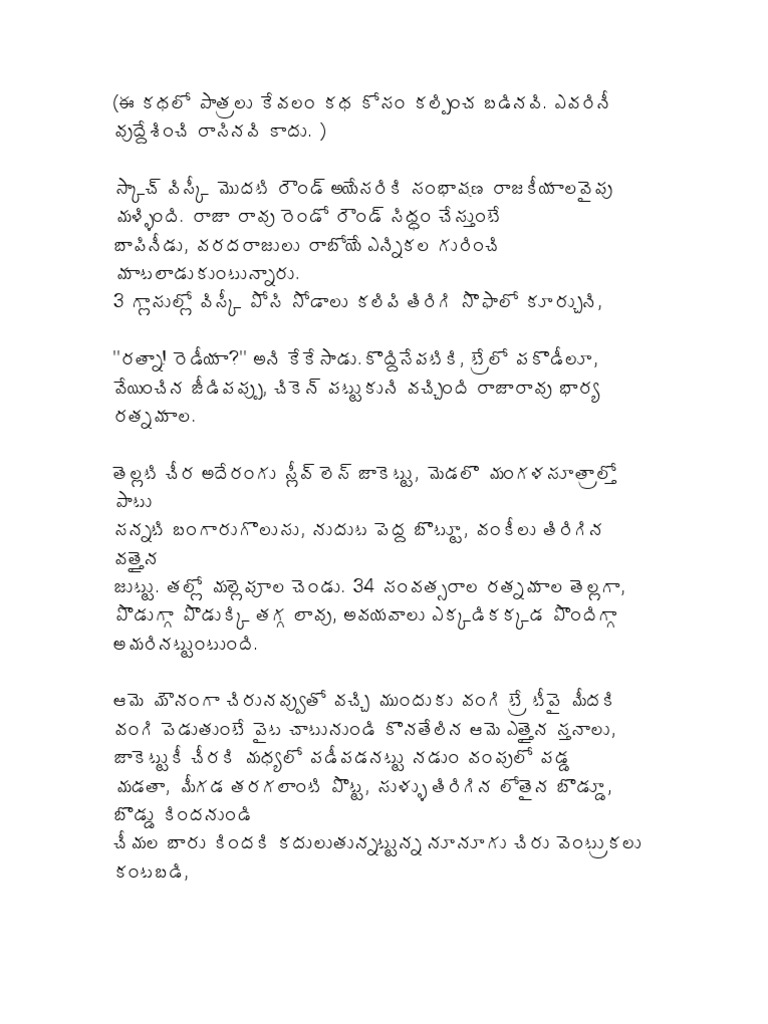 (ఈ కథలో పాత్రలు కేవలం కథ కోసం కల్పించ బడినవి. ఎవరినీ
వుద్దేశించి రాసినవి కాదు. )
స్కాచ్ విస్కీ మొదటి రౌండ్ అయేసరికి సంభాషణ రాజకీయాలవైపు
మళ్ళింది. రాజా రావు రెండో రౌండ్ సిద్ధం చేస్తుంటే
బాపినీడు, వరదరాజులు రాబోయే ఎన్నికల గురించి
మాటలాడుకుంటున్నారు.
3 గ్లాసుల్లో విస్కీ పోసి సోడాలు కలిపి తిరిగి సొఫాలో కూర్చుని,
"రత్నా! రెడీయా?" అని కేకేసాడు. కొద్దిసేపటికి, ట్రేలో పకొడీలూ,
వేయించిన జీడిపప్పు, చికెన్ పట్టుకుని వచ్చింది రాజారావు భార్య
రత్నమాల.
తెల్లటి చీర అదేరంగు స్లీవ్ లెస్ జాకెట్టు, మెడలొ మంగళసూత్రాల్తో
పాటు
సన్నటి బంగారుగొలుసు, నుదుట పెద్ద బొట్టూ, వంకీలు తిరిగిన
వత్తైన
జుట్టు. తల్లో మల్లెపూల చెండు. 34 సంవత్సరాల రత్నమాల తెల్లగా,
పొడుగ్గా పొడుక్కి తగ్గ లావు, అవయవాలు ఎక్కడికక్కడ పొందిగ్గా
అమరినట్టుంటుంది.
ఆమె మౌనంగా చిరునవ్వుతో వచ్చి ముందుకు వంగి ట్రే టీపై మీదకి
వంగి పెడుతుంటే పైట చాటునుండి కొనతేలిన ఆమె ఎత్తైన స్తనాలు,
జాకెట్టుకీ చీరకి మధ్యలో పడీపడనట్టు నడుం వంపులో పడ్డ
మడతా, మీగడ తరగలాంటి పొట్ట, సుళ్ళు తిరిగిన లోతైన బొడ్డూ,
బొడ్డు కిందనుండి
చీమల బారు కిందకి కదులుతున్నట్టున్న నూనూగు చిరు వెంట్రుకలు
కంటబడి,